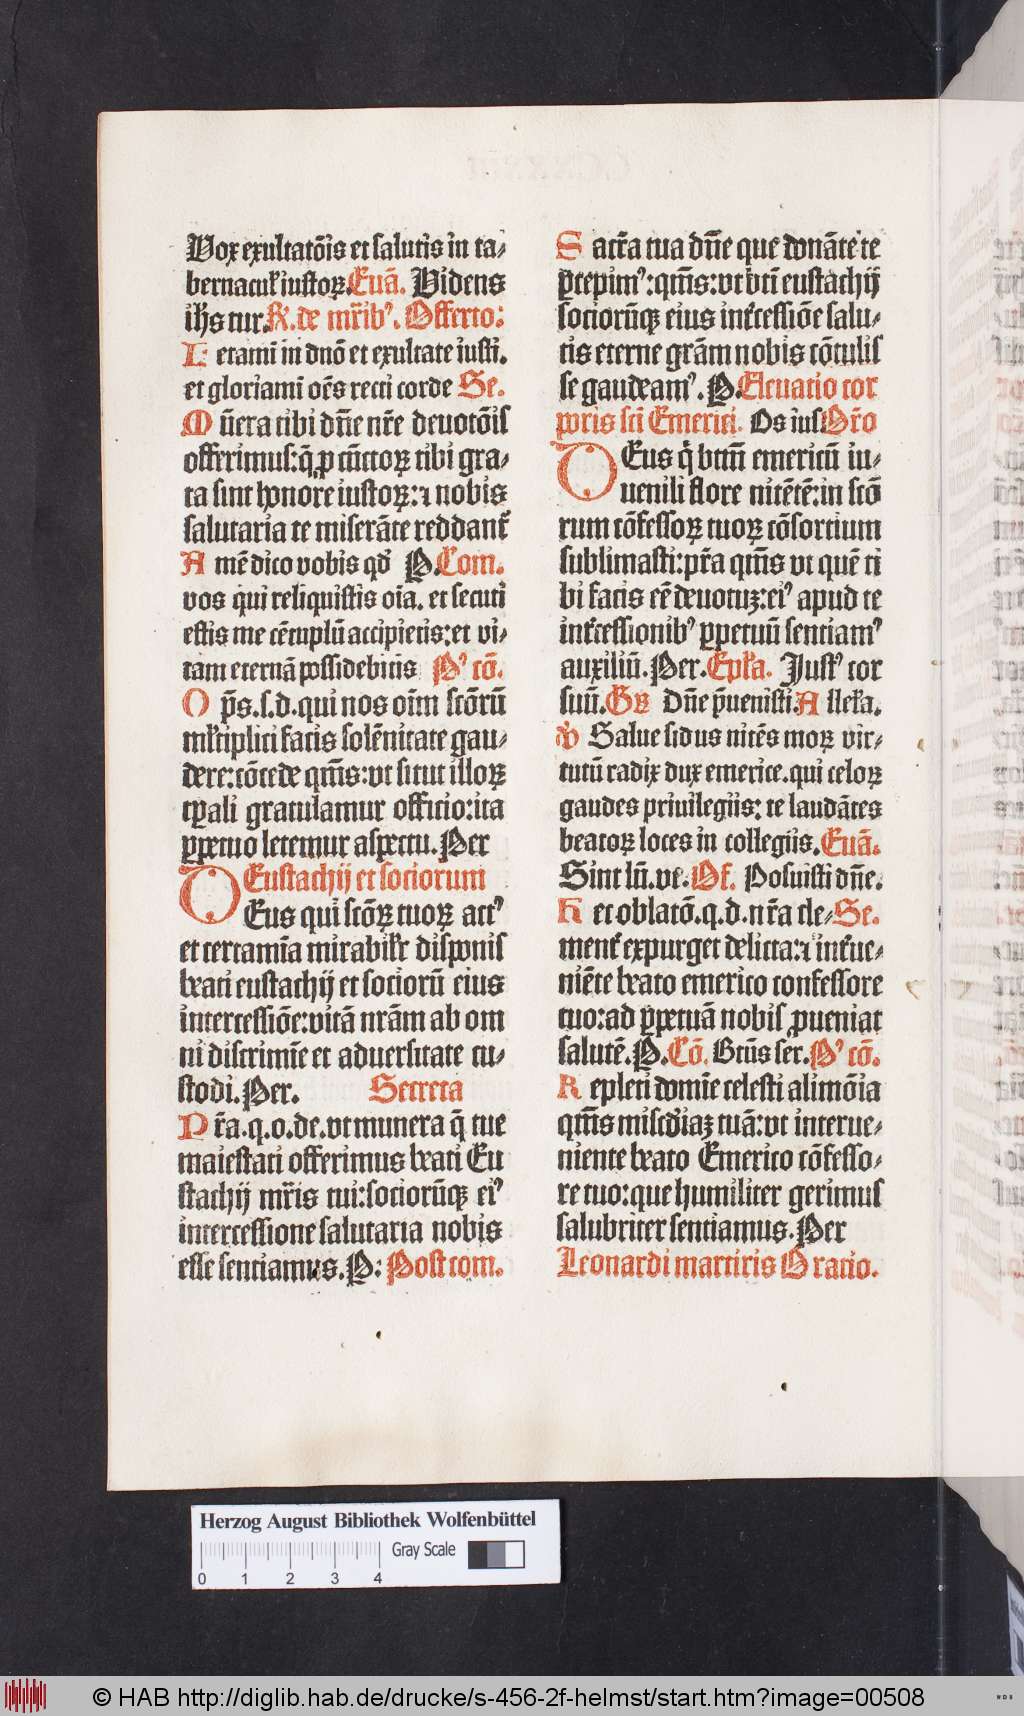 Vox exultatōis et salutis in ta⸗
bernacuł iustoꝝ. Euā. Videns
ihs tur. R̄. de mr̄ibꝰ. Offerto:
Letami in dnō et exultate iusti.
et gloriami oēs recti corde Se.
Mūera tibi dn̄e nr̄e deuotōis
offerimus: q̄ p cūctoꝝ tibi gra⸗
ta sint honore iustoꝝ: ⁊ nobis
salutaria te miserāte reddant̄
Amē dico vobis qđ P. Com.
vos qui reliquistis oīa. et secuti
estis me cētuplū accipietis: et vi⸗
tam eternā possidebitis Pꝰ cō.
O p̄s. s. d. qui nos oīm scōrū
mł̄tiplici facis solēnitate gau⸗
dere: cōcede qm̄s: vt sicut illoꝝ
tꝑali gratulamur officio: ita
ꝑpetuo letemur aspectu. Per
Eustachij et sociorum
DEus qui scōꝝ tuoꝝ actꝰ
et certamīa mirabilit̄ disponis
beati eustachij et sociorū eius
intercessiōe: vitā nrām ab om
ni discrimīe et aduersitate cu⸗
stodi. Per. Secreta
Pr̄a. q. o. de. vt munera q̄ tue
maiestati offerimus beati Eu
stachij mr̄is tui: sociorūqꝫ eiꝰ
intercessione salutaria nobis
esse sentiamus. P: Post com.
Sacr̄a tua dn̄e que donāte te
p̄cepimꝰ: qm̄s: vt bt̄i eustachij
sociorūqꝫ eius int̄cessiōe salu⸗
tis eterne grām nobis cōtulis
se gaudeamꝰ. P. Eleuatio cor
poris sc̄i Emerici. Os ius Or̄o
DEus q̇ btm̄ emericū iu⸗
uenili flore nitētē: in scō
rum cōfessoꝝ tuoꝝ cōsortium
sublimasti: pr̄a qm̄s vt quē ti
bi facis eē deuotuꝫ: eiꝰ apud te
int̄cessionibꝰ ꝑpetuū sentiamꝰ
auxiliū. Per. Epła. Justꝰ cor
suū. Gr̄ Dn̄e p̄uenisti. Alleła.
v̄ Salue sidus nitēs moꝝ vir⸗
tutū radix dux emerice. qui celoꝝ
gaudes priuilegiis: te laudātes
beatoꝝ loces in collegiis. Euā.
Sint lū. ve. Of. Posuisti dn̄e.
Hec oblatō. q. d. nr̄a cle⸗ Se.
ment̄ expurget delicta: ⁊ int̄ue⸗
niēte beato emerico confessore
tuo: ad ꝑpetuā nobis ꝓueniat
salutē. P. Cō. Btūs ser. Pꝰ cō.
Repleti domīe celesti alimōia
qm̄s misc̄diaꝫ tuā: vt interue⸗
niente beato Emerico cōfesso⸗
re tuo: que humiliter gerimus
salubriter sentiamus. Per
Leonardi martiris Oratio.
Herzog August Bibliothek Wolfenbüttel
Gray Scale
0 1 2 3 4
© HAB http://diglib.hab.de/drucke/s-456-2f-helmst/start.htm?image=00508